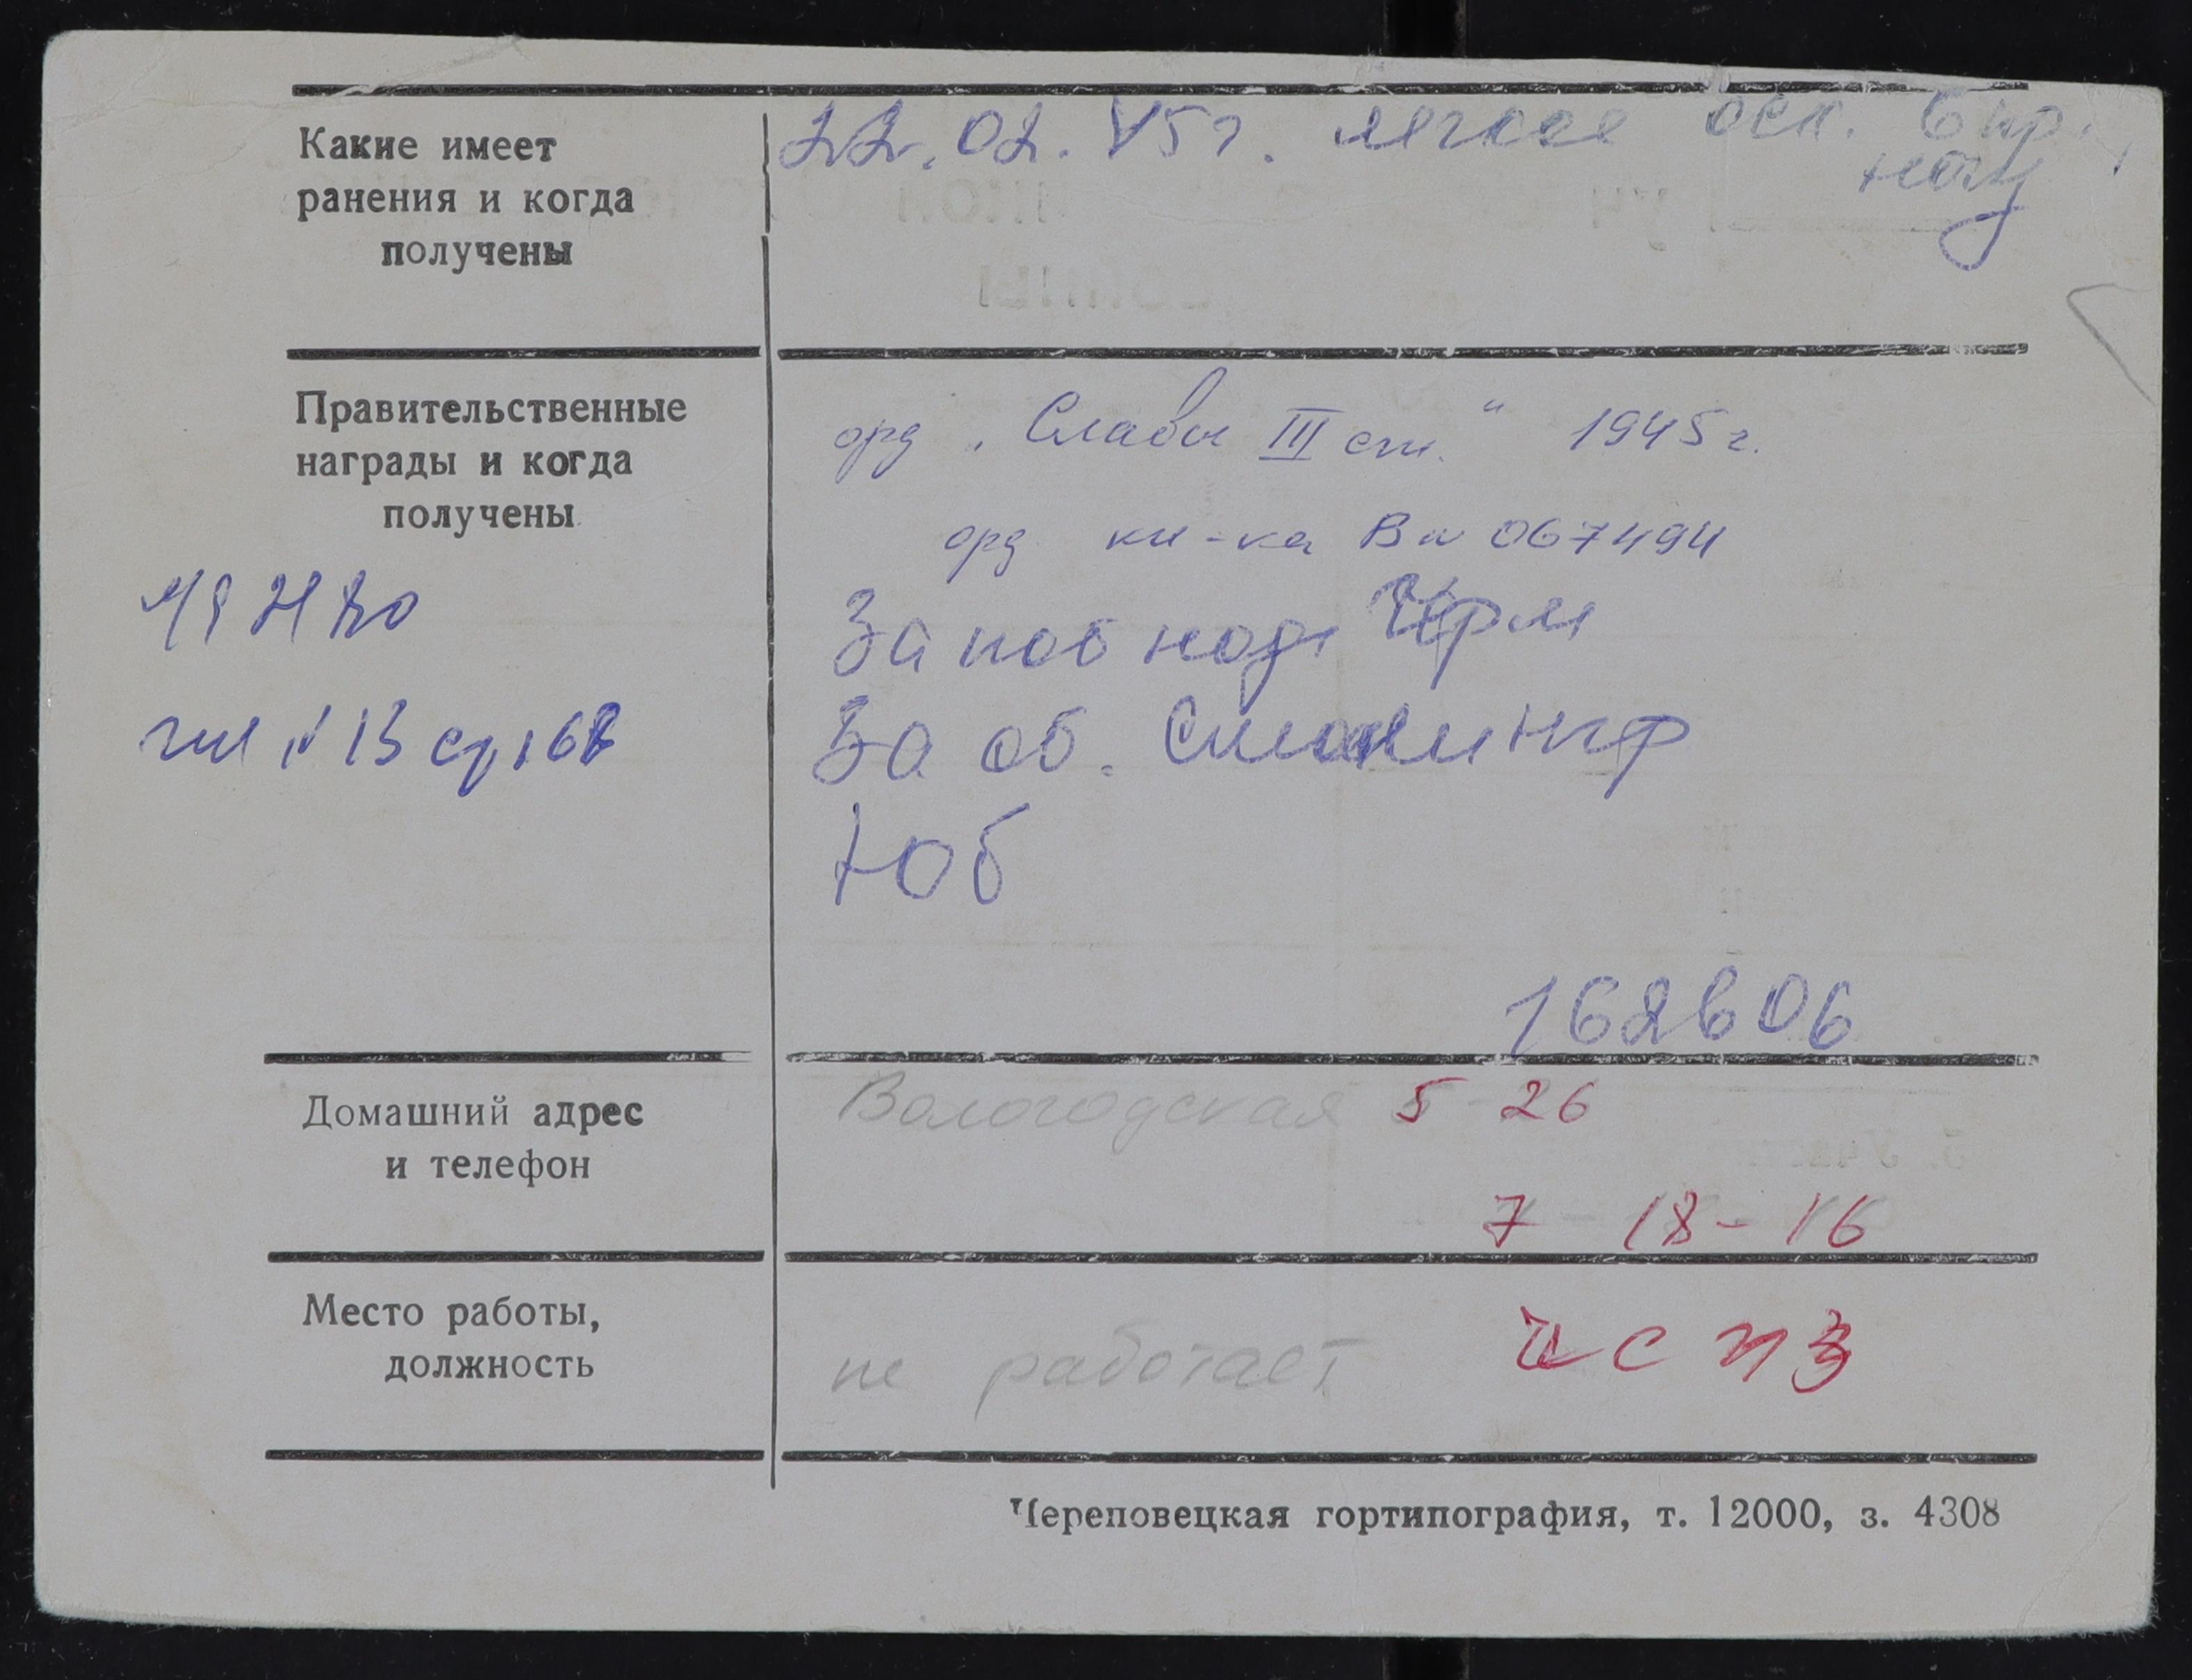 Какие имеет
ранения и когда
получены
22.02.45г. легкое оск. в пр.
ногу
Правительственные
награды и когда
получены
орд „Славы III ст." 1945г.
орд кн-ка Ви 067494
За поб над Герм
За об. Сталингр
Юб
162606
Домашний адрес
и телефон
Вологодская 5 - 26
7 - 18 - 16
Место работы,
должность
не работает
ЧСПЗ
Череповецкая гортипография, т. 12000, з. 4308